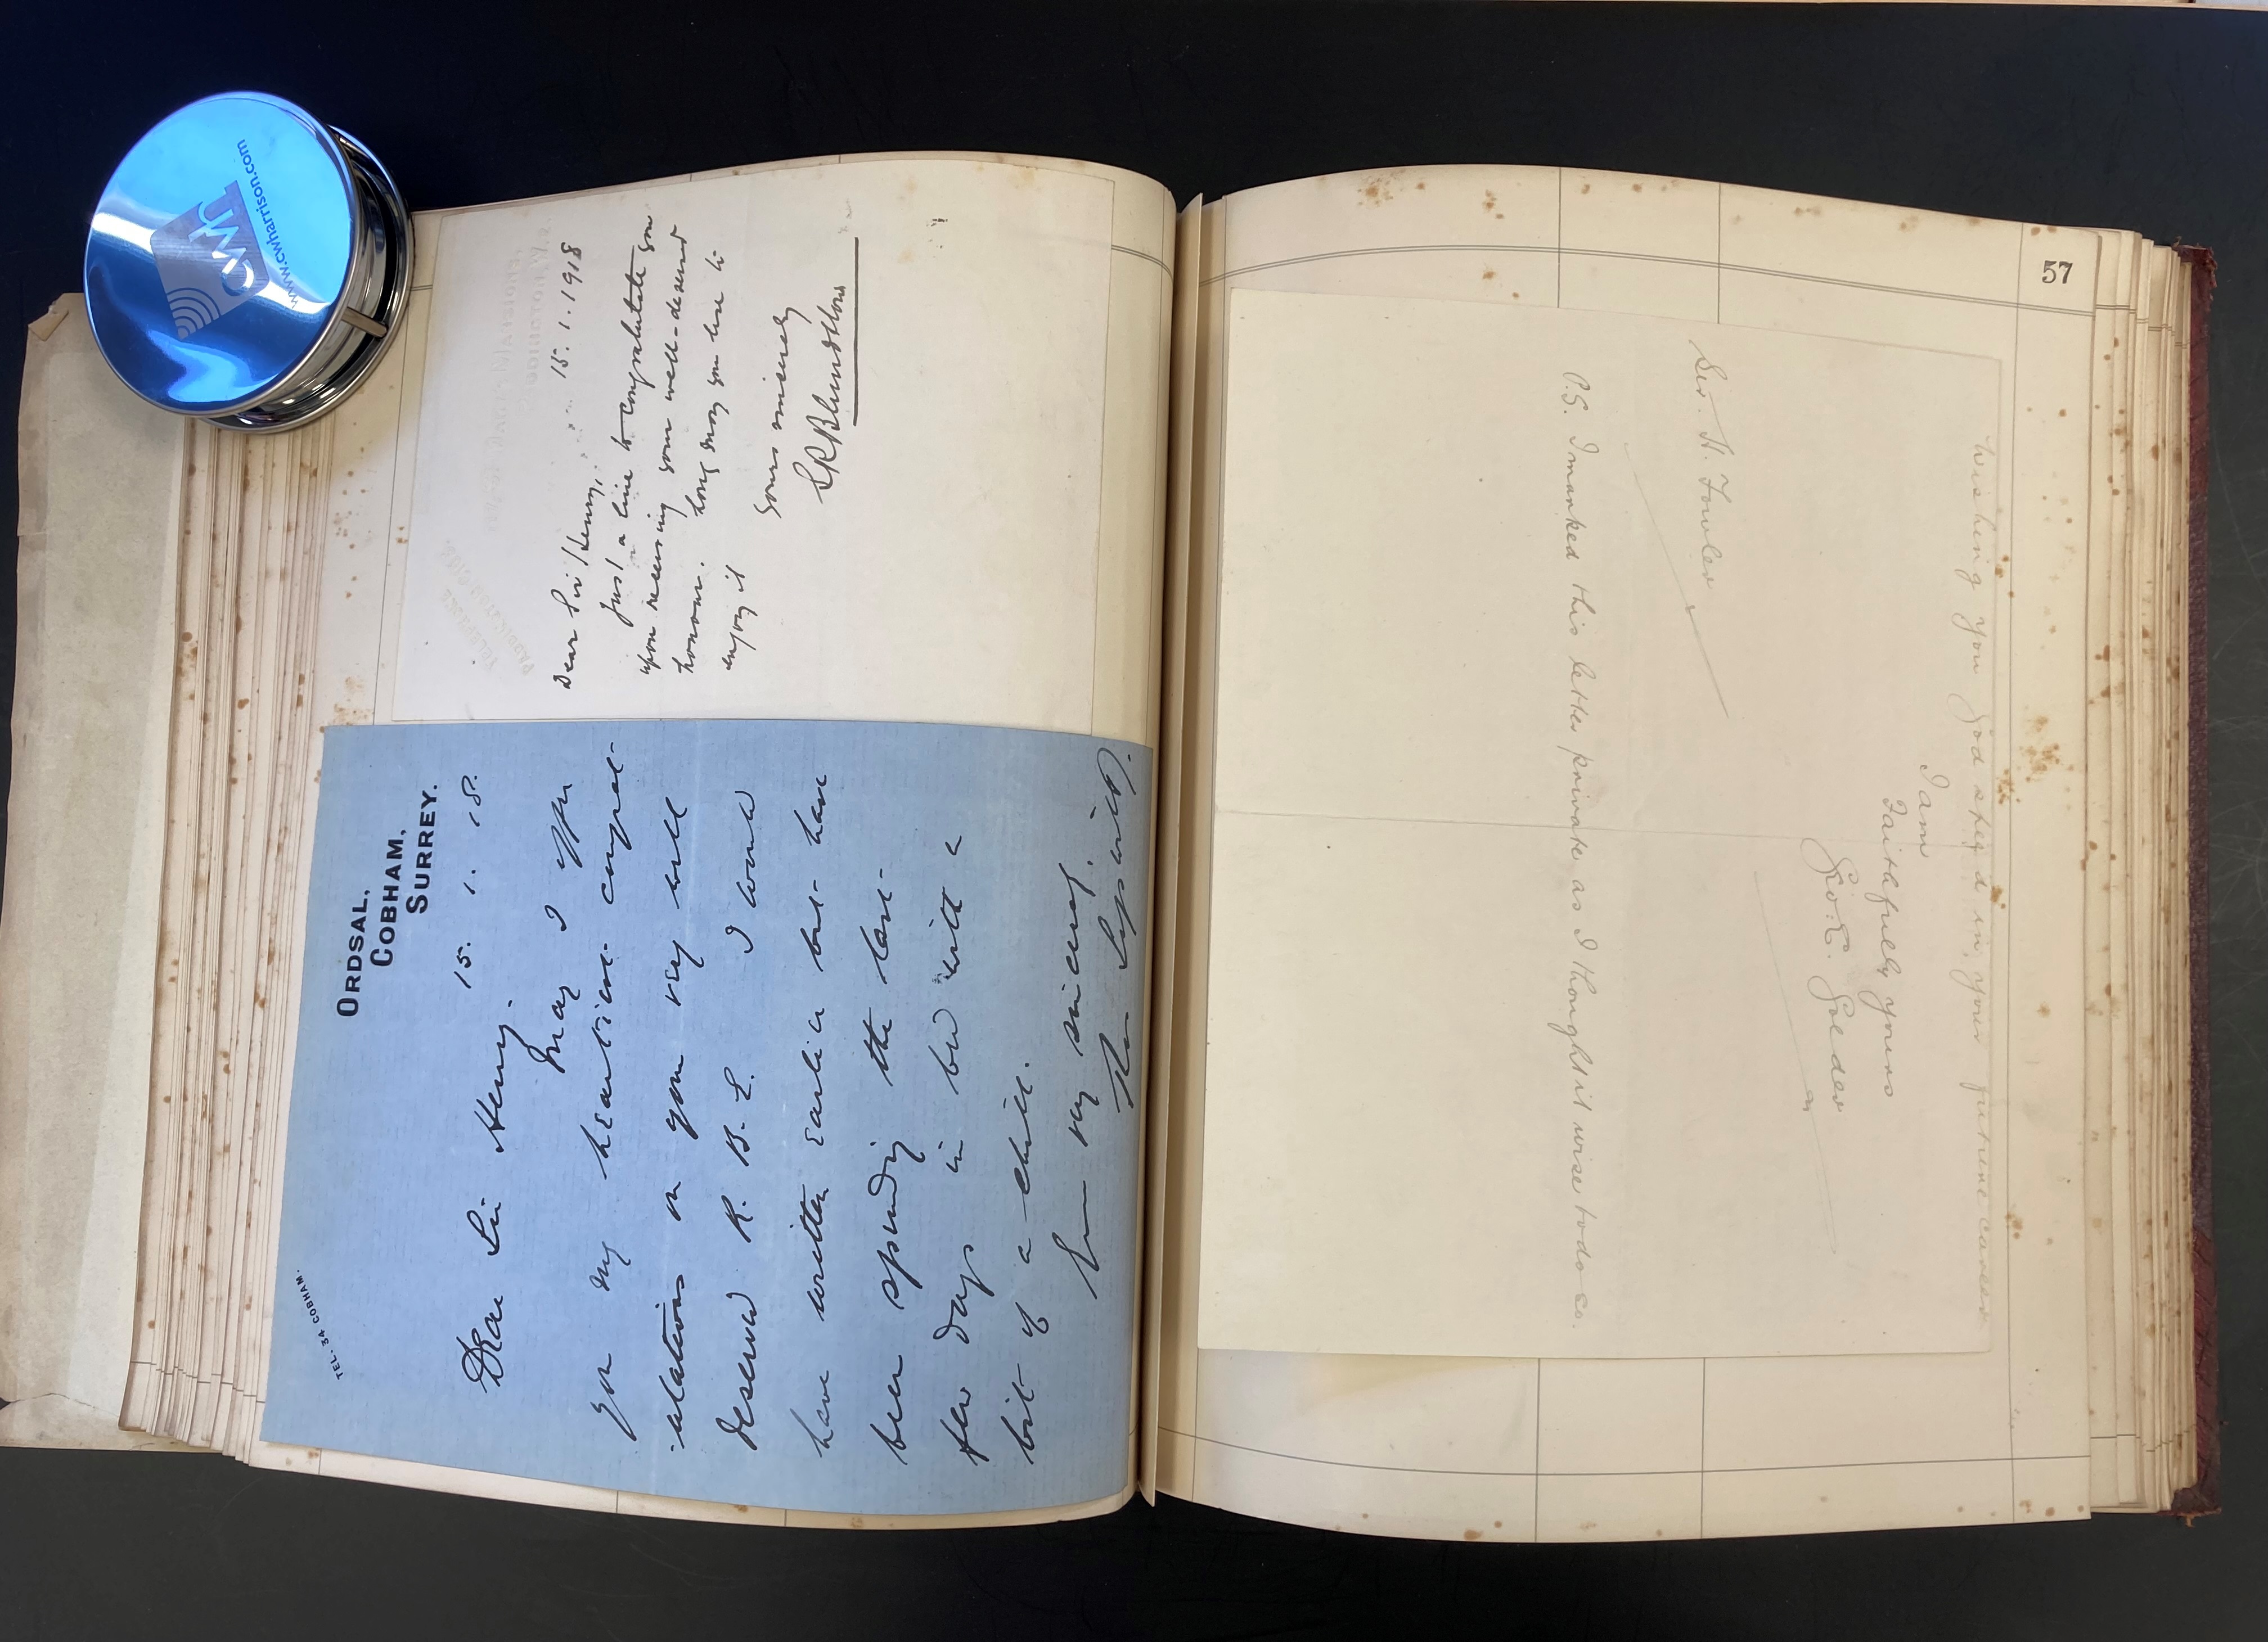 TEL. 34 COBHAM.
ORDSAL,
COBHAM,
SURREY.
15. 1. 18.
Dear Sir Henry.
May I offer
you my heartiest congrat-
-ulations on your very well
deserved K. B. E. I would
have written earlier but have
been spending the last
few days in bed with a
bit of a chill.
very sincerely.
TELEPHONE
PADDINGTON
MANSIONS,
15.1.1918
Dear Sir Henry,
Just a line to congratulate you
upon receiving your well-deserved
honour. Long may you live to
enjoy it
Yours sincerely
www.cwharrison.com
cwh
57
Wishing you God speed in your future career
I am
Faithfully yours
Geo. E.
Sir. H. Fowler
P.S. I marked this letter private as I thought it wise to do so.